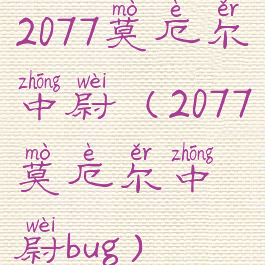 mò è ěr
2077莫厄尔
zhōng wèi
中尉（2077
mò è ěr zhōng
莫厄尔中
wèi
尉bug）